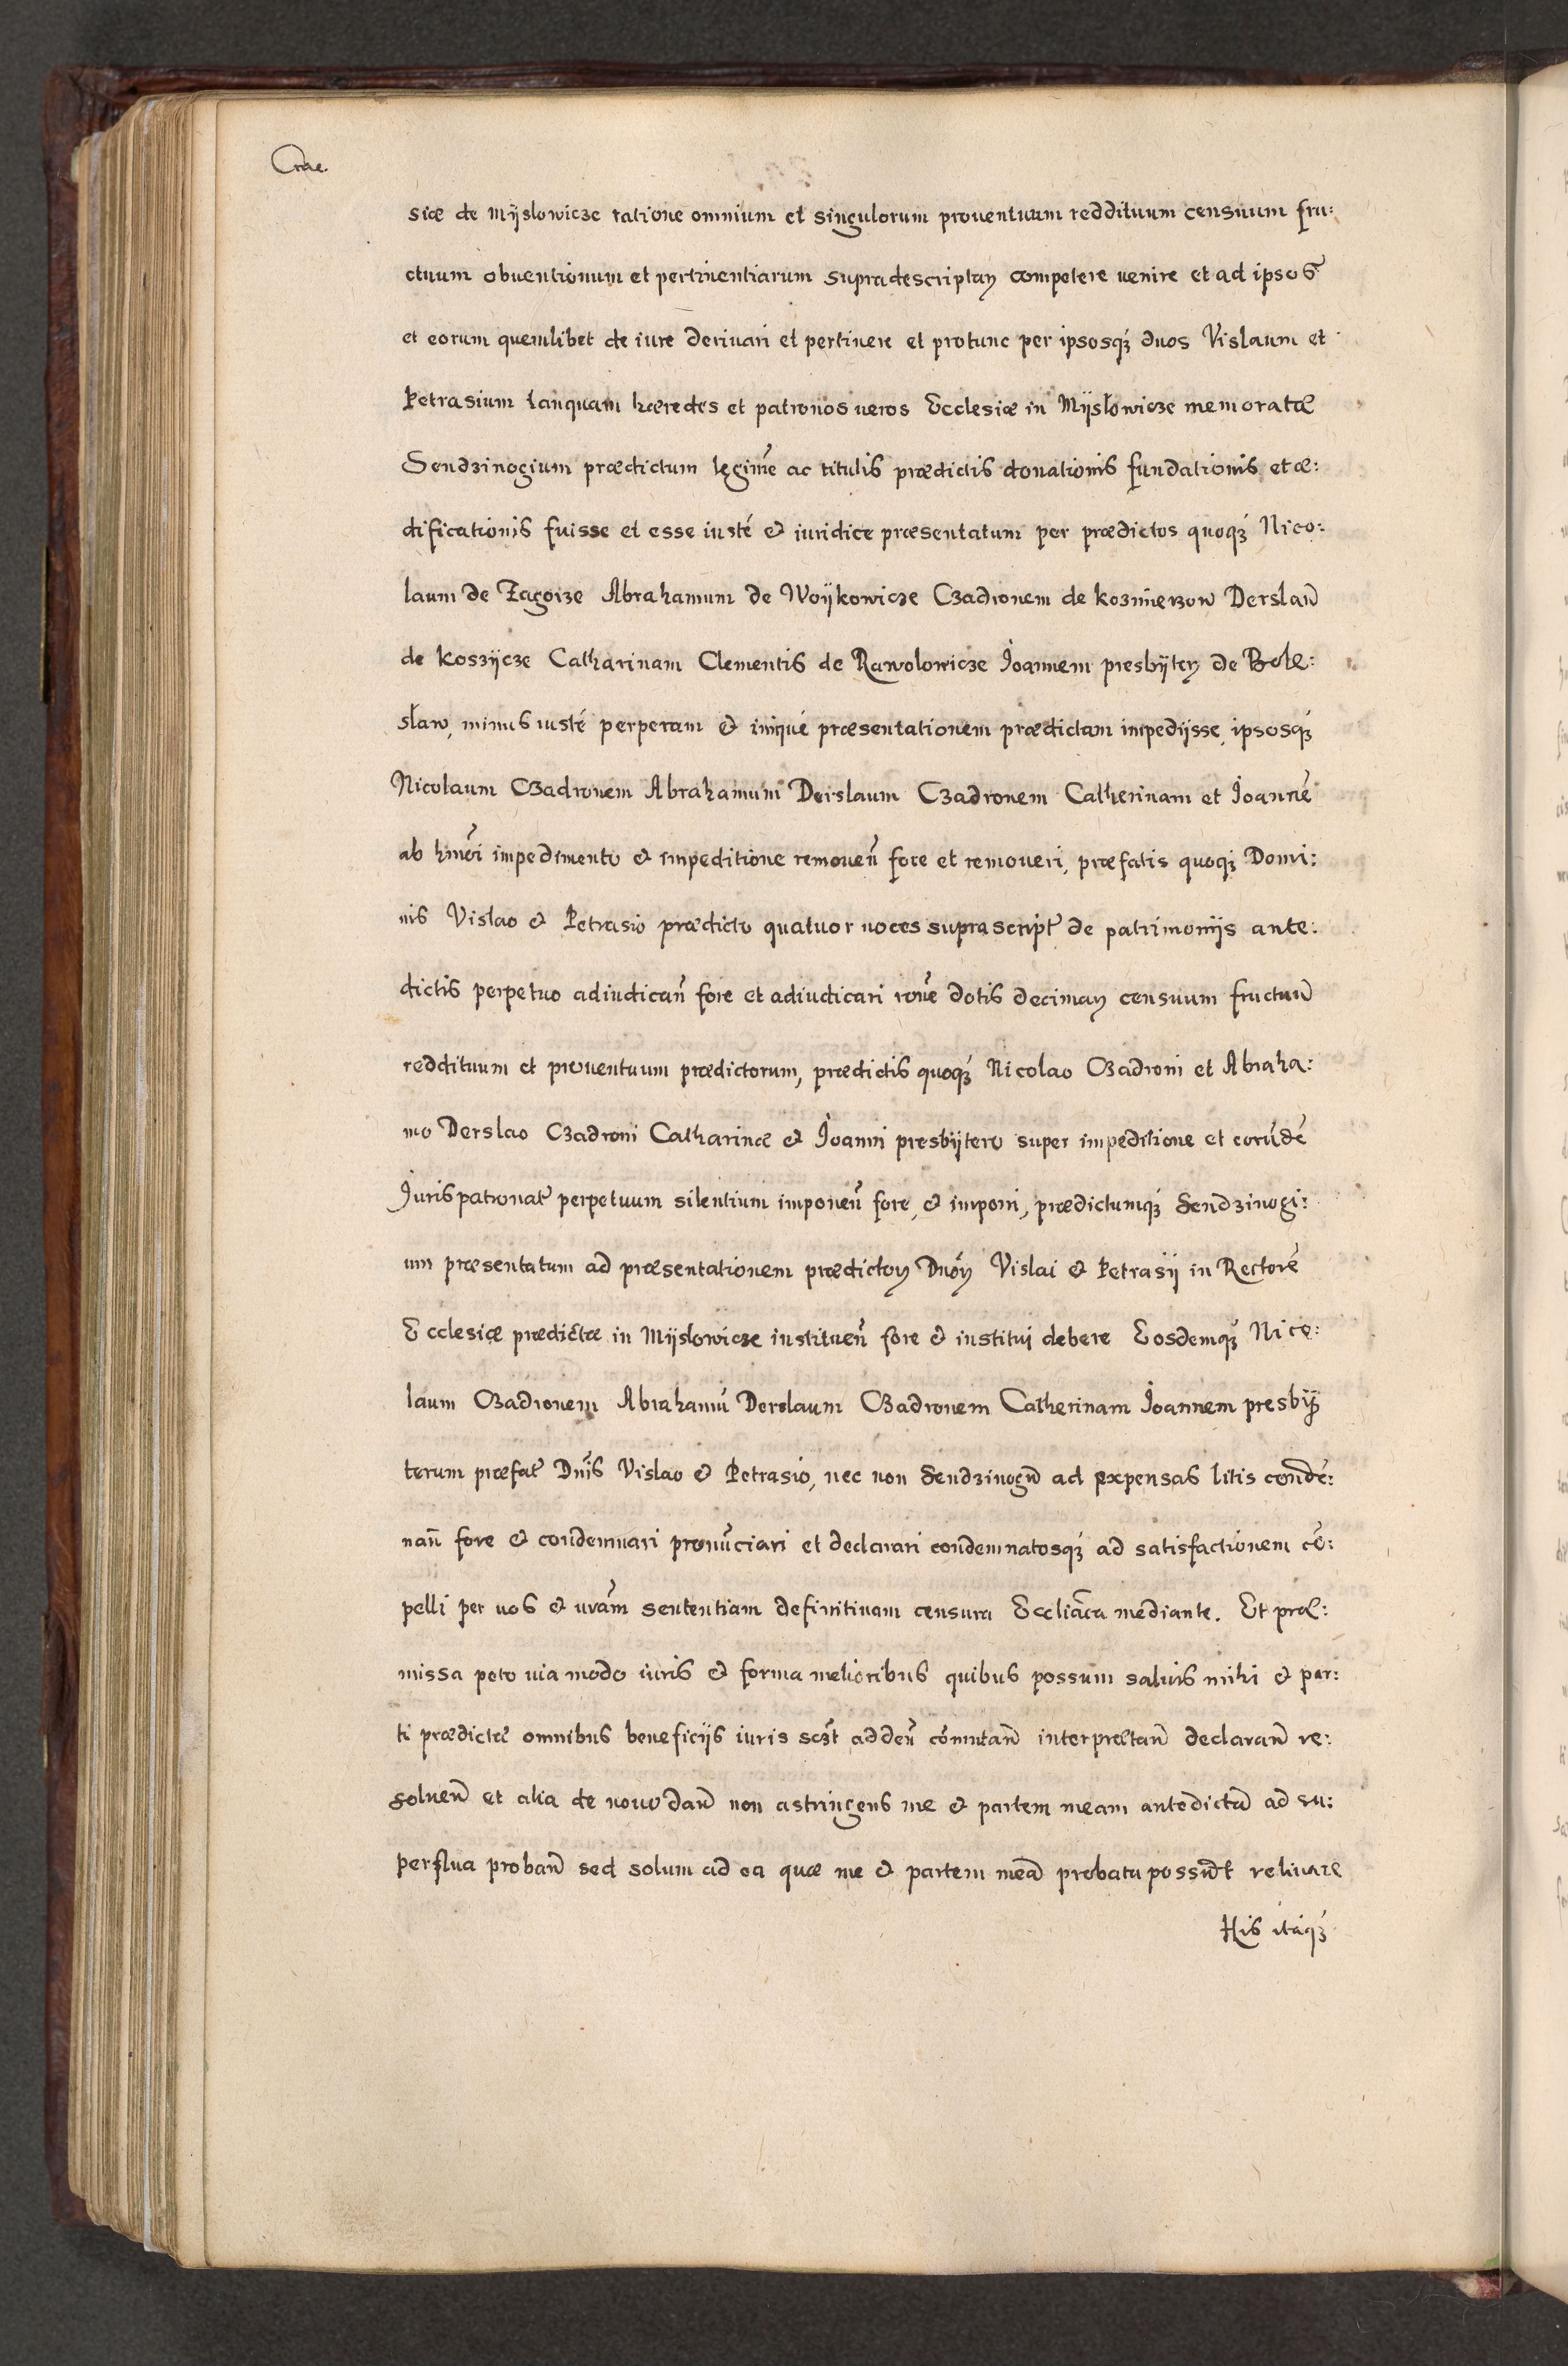 Crae.
siæ de Mÿslowicze ratione omnium et singulorum prouentuum reddituum censuum fru:
ctuum obuentionum et pertinentiarum supradescriptaꝝ competere uenire et ad ipsos
et eorum quemlibet de iure deriuari et pertinere et protunc per ipsosqꝫ duos Vislaum et
Petrasium tanquam hæredes et patronos ueros Ecclesiæ in Mÿslowicze memoratæ
Sendzinogium prædictum legitime ac titulis prædictis donationis fundationis et æ:
dificationis fuisse et esse iusté & iuridice præsentatum per prædictos quoqꝫ Nico:
laum de Zagorze Abrahamum de Woÿkowicze Czadronem de kozmierzow Derslaū
de koszÿcze Catharinam Clementis de Rawolowicze Joannem presbÿterꝝ de Bole:
sław, minus iusté perperam & iniqué præsentationem prædictam impedÿsse, ipsosqꝫ
Nicolaum Czadronem Abrahamum Derslaum Czadronem Catherinam et Joannē
ab hm̄oi impedimento & impeditione remouen̄ fore et remoueri, præfatis quoqꝫ Domi:
nis Vislao & Petrasio prædicto quatuor uoces suprascript̄ de patrimonÿs ante:
dictis perpetuo adiudican̄ fore et adiudicari rōne dotis decimaꝝ censuum fructuū
reddituum et prouentuum prædictorum, prædictis quoqꝫ Nicolao Czadroni et Abraha:
mo Derslao Czadroni Catharinæ & Joanni presbÿtero super impeditione et eorūdē
Jurispatronat̄ perpetuum silentium imponen̄ fore, & imponi, prædictumqꝫ Sendzinogi:
um præsentatum ad præsentationem prædictoꝝ Dn̄oꝝ Vislai & Petrasÿ in Rectorē
Ecclesiæ prædictæ in Mÿslowicze instituen̄ fore & institui debere Eosdemqꝫ Nico:
laum Czadronem Abrahamū Derslaum Czadronem Catherinam Joannem presbÿ
terum præfat̄ Dn̄is Vislao & Petrasio, nec non Sendzinogio ad expensas litis condē:
nan̄ fore & condemnari pronūciari et declarari condemnatosqꝫ ad satisfactionem cō:
pelli per uos & vrām sententiam definitiuam censura Eccliāca mediante. Et præ:
missa peto uia modo iuris & forma melioribus quibus possum saluis mihi & par:
ti prædictæ omnibus beneficÿs iuris sczt adden̄ cōmutan̄ interpretan̄ declaran̄ re:
soluen̄ et alia de nouo dan̄ non astringens me & partem meam antedictā ad su:
perflua proban̄ sed solum ad ea quæ me & partem meā probata possūt releuare
His itaqꝫ